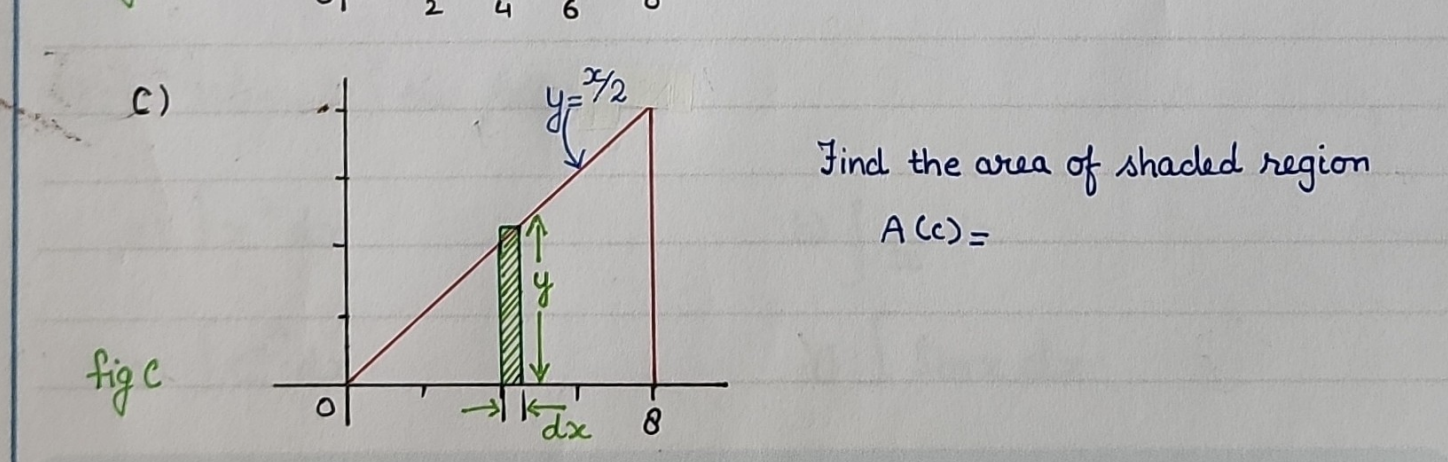 2 4 6
C)
y=x/2
Find the area of shaded region
A(c)=
y
fig C
0
dx
8